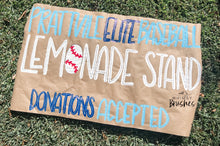 PRATTVILLE ELITE BASEBALL
LEMONADE STAND
DONATIONS ACCEPTED
Brushes